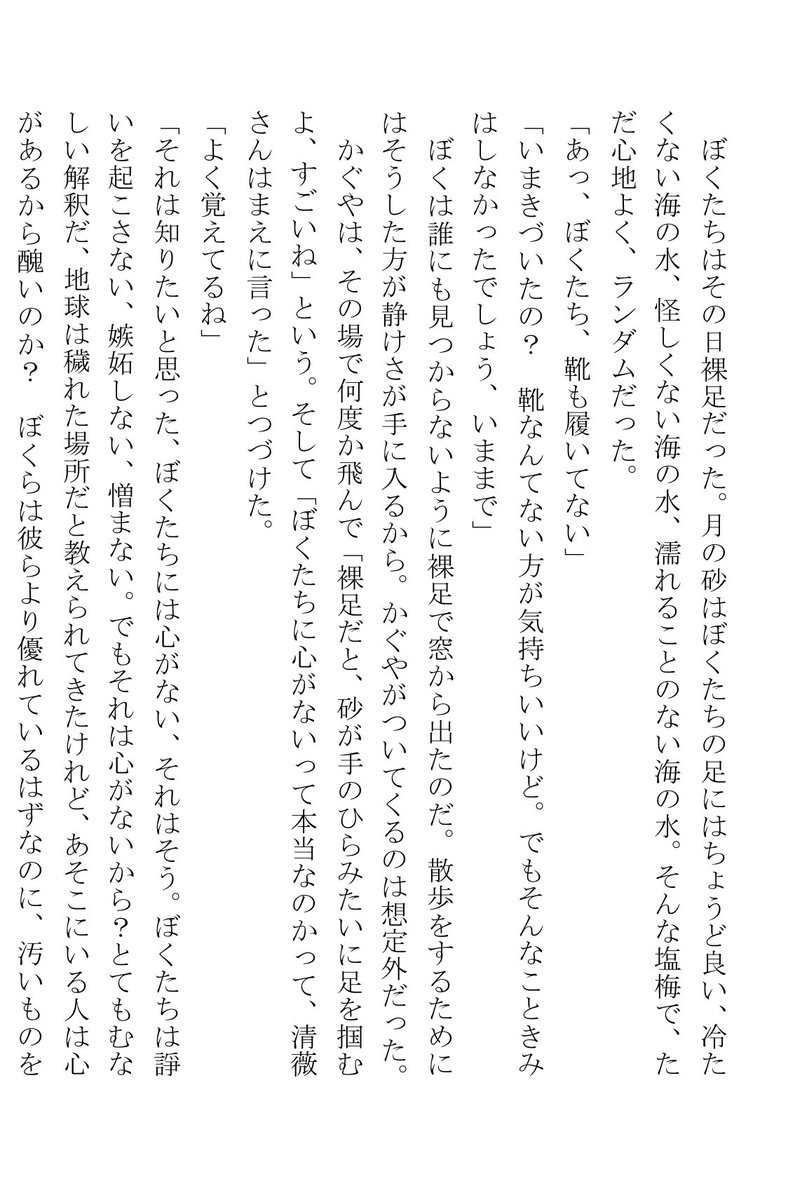 ぼくたちはその日裸足だった。月の砂はぼくたちの足にはちょうど良い、冷た
くない海の水、怪しくない海の水、濡れることのない海の水。そんな塩梅で、た
だ心地よく、ランダムだった。
「あっ、ぼくたち、靴も履いてない」
「いまきづいたの？　靴なんてない方が気持ちいいけど。でもそんなこときみ
はしなかったでしょう、いままで」
ぼくは誰にも見つからないように裸足で窓から出たのだ。散歩をするために
はそうした方が静けさが手に入るから。かぐやがついてくるのは想定外だった。
かぐやは、その場で何度か飛んで「裸足だと、砂が手のひらみたいに足を掴む
よ、すごいね」という。そして「ぼくたちに心がないって本当なのかって、清薇
さんはまえに言った」とつづけた。
「よく覚えてるね」
「それは知りたいと思った、ぼくたちには心がない、それはそう。ぼくたちは諍
いを起こさない、嫉妬しない、憎まない。でもそれは心がないから？とてもむな
しい解釈だ、地球は穢れた場所だと教えられてきたけれど、あそこにいる人は心
があるから醜いのか？　ぼくらは彼らより優れているはずなのに、汚いものを